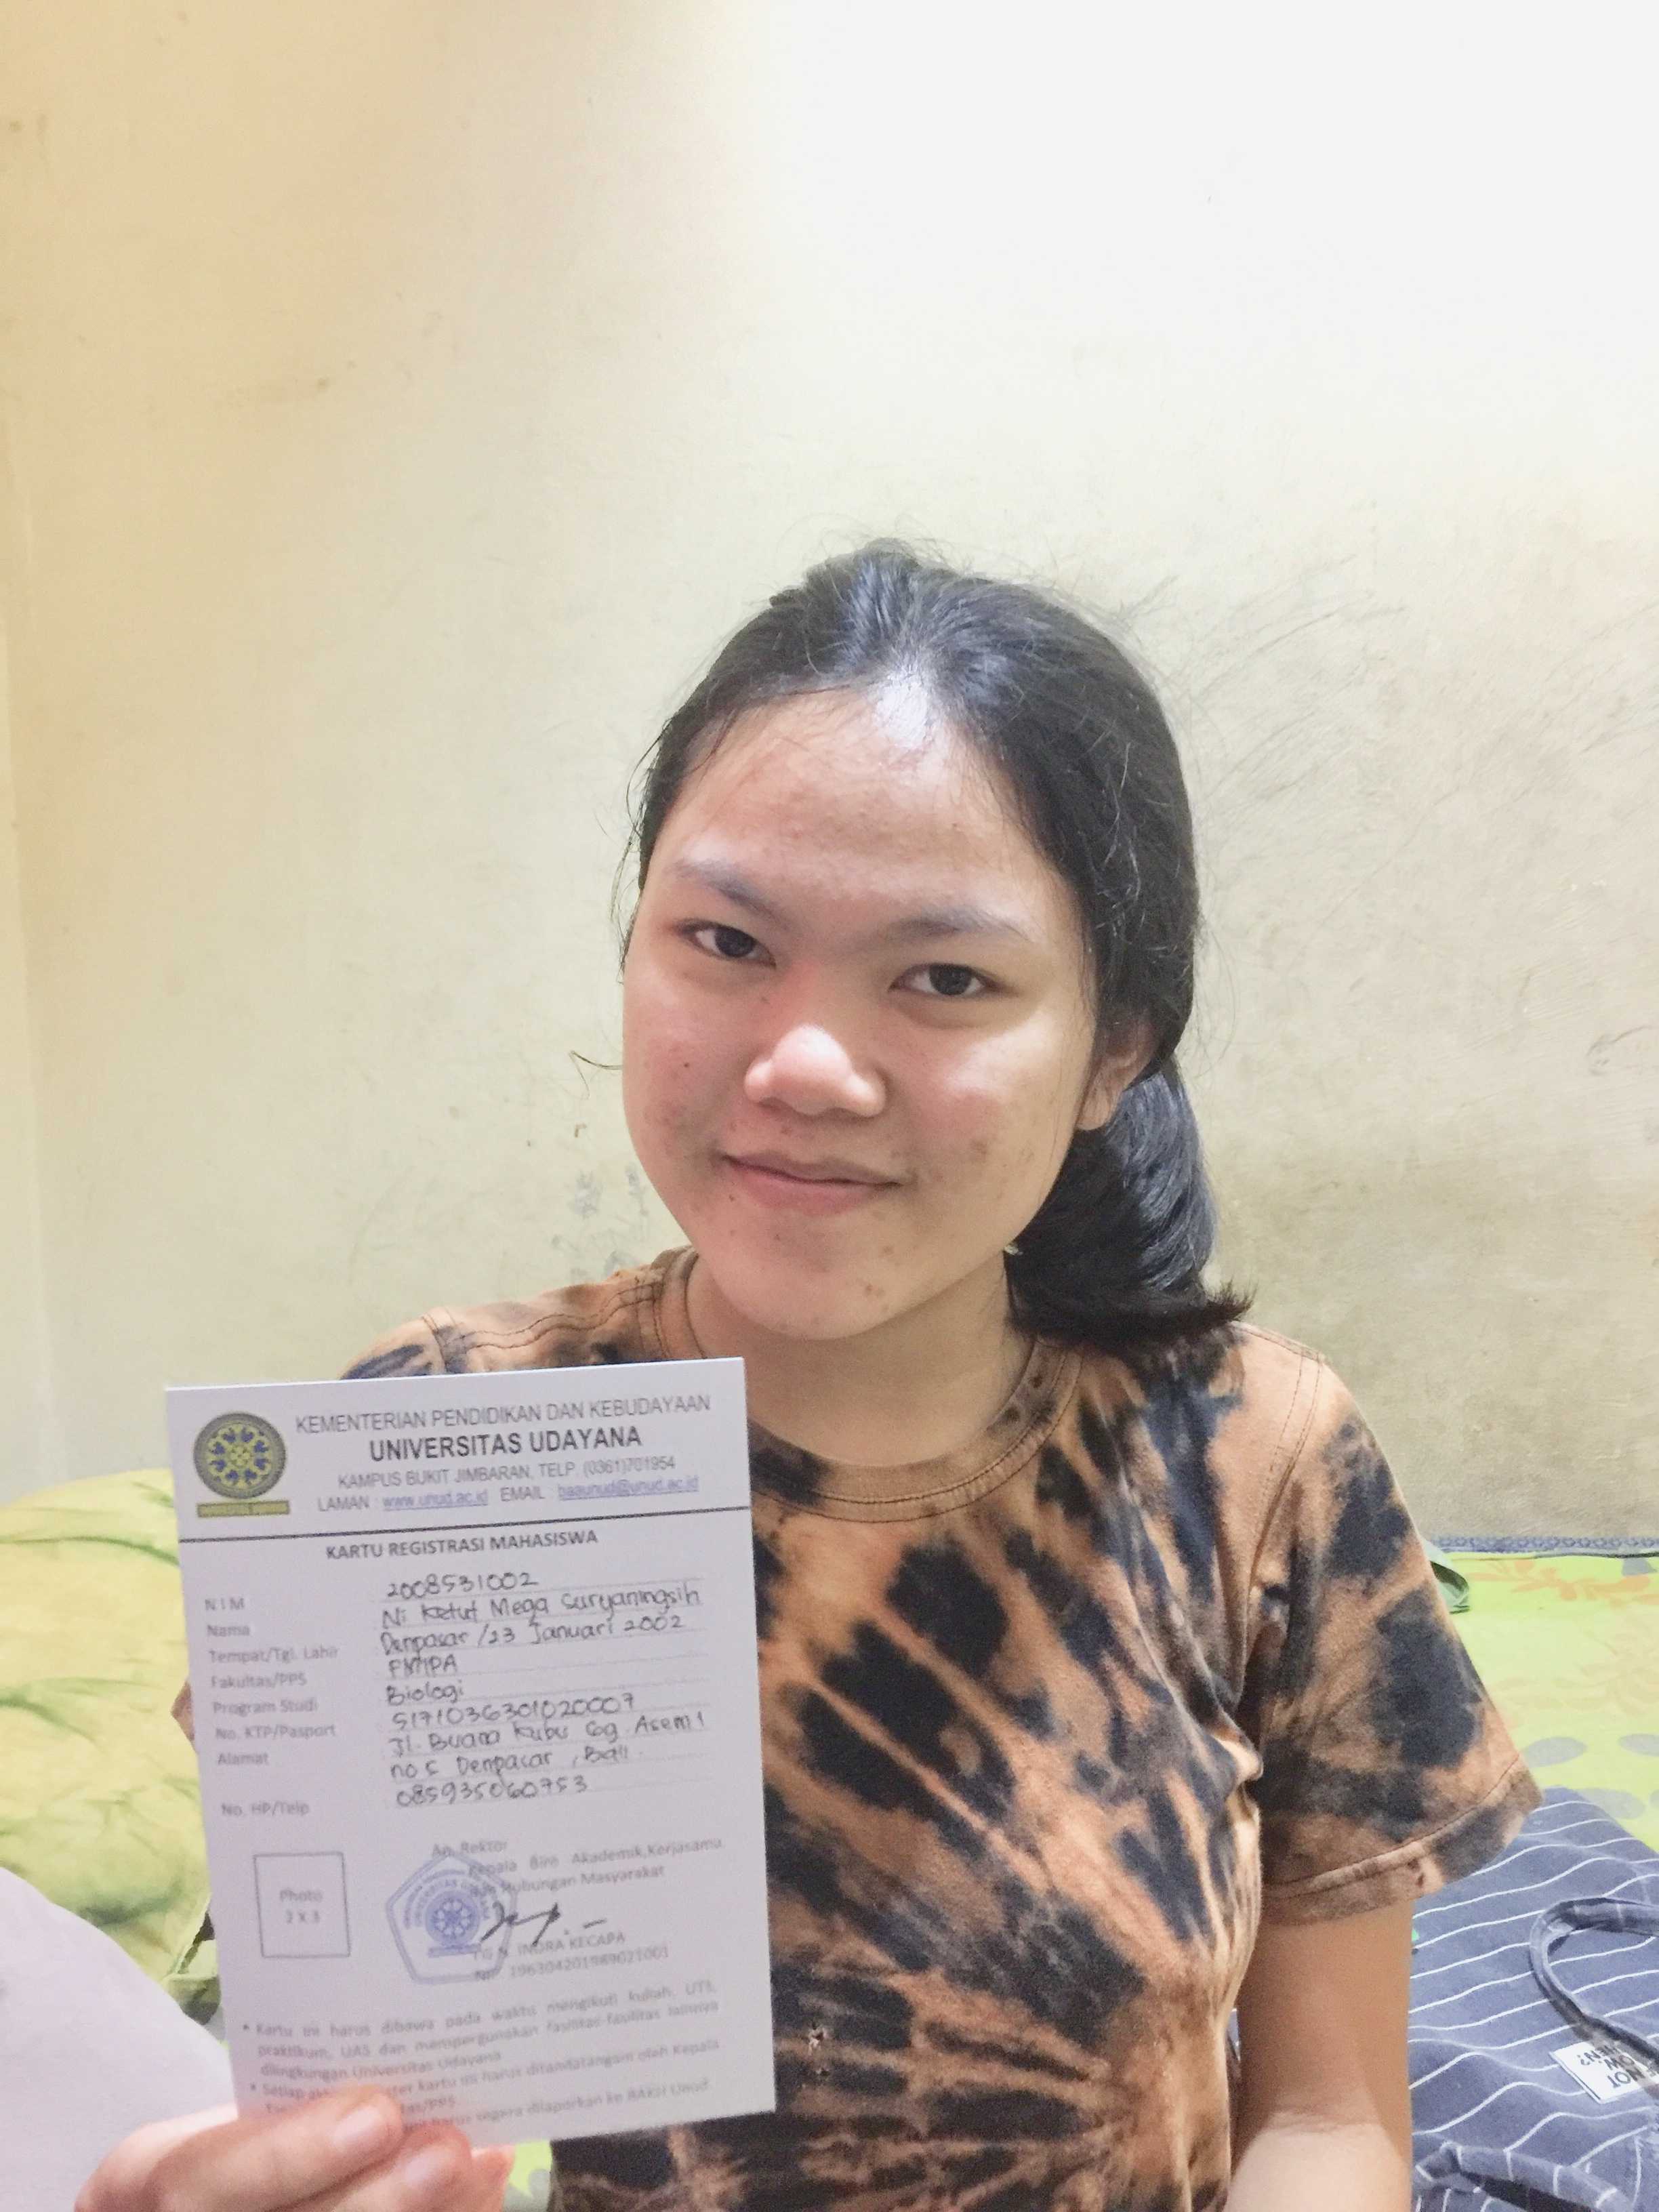 KEMENTERIAN PENDIDIKAN DAN KEBUDAYAAN
UNIVERSITAS UDAYANA
KAMPUS BUKIT JIMBARAN, TELP. (0361)701954
LAMAN : www.unud.ac.id EMAIL : baaunud@unud.ac.id
KARTU REGISTRASI MAHASISWA
NIM 2008531002
Nama Ni Ketut Mega Suryaningsih
Tempat/Tgl. Lahir Denpasar /23 Januari 2002
Fakultas/PPS FMIPA
Program Studi Biologi
No. KTP/Pasport 5171036301020007
Alamat Jl. Buana Kubu Gg. Asem 1
no 5 Denpasar , Bali
No. HP/Telp 085935060753
An. Rektor
Kepala Biro Akademik,Kerjasama
dan Hubungan Masyarakat
Photo
2 X 3
INDRA KECAPA
196304201989021001
* Kartu ini harus dibawa pada waktu mengikuti kuliah, UTS,
praktikum, UAS dan mempergunakan fasilitas-fasilitas lainnya
dilingkungan Universitas Udayana
* Setiap kartu ini harus ditandatangani oleh Kepala
harus segera dilaporkan ke BAKH Unud
NOT
NOW.
HEN?